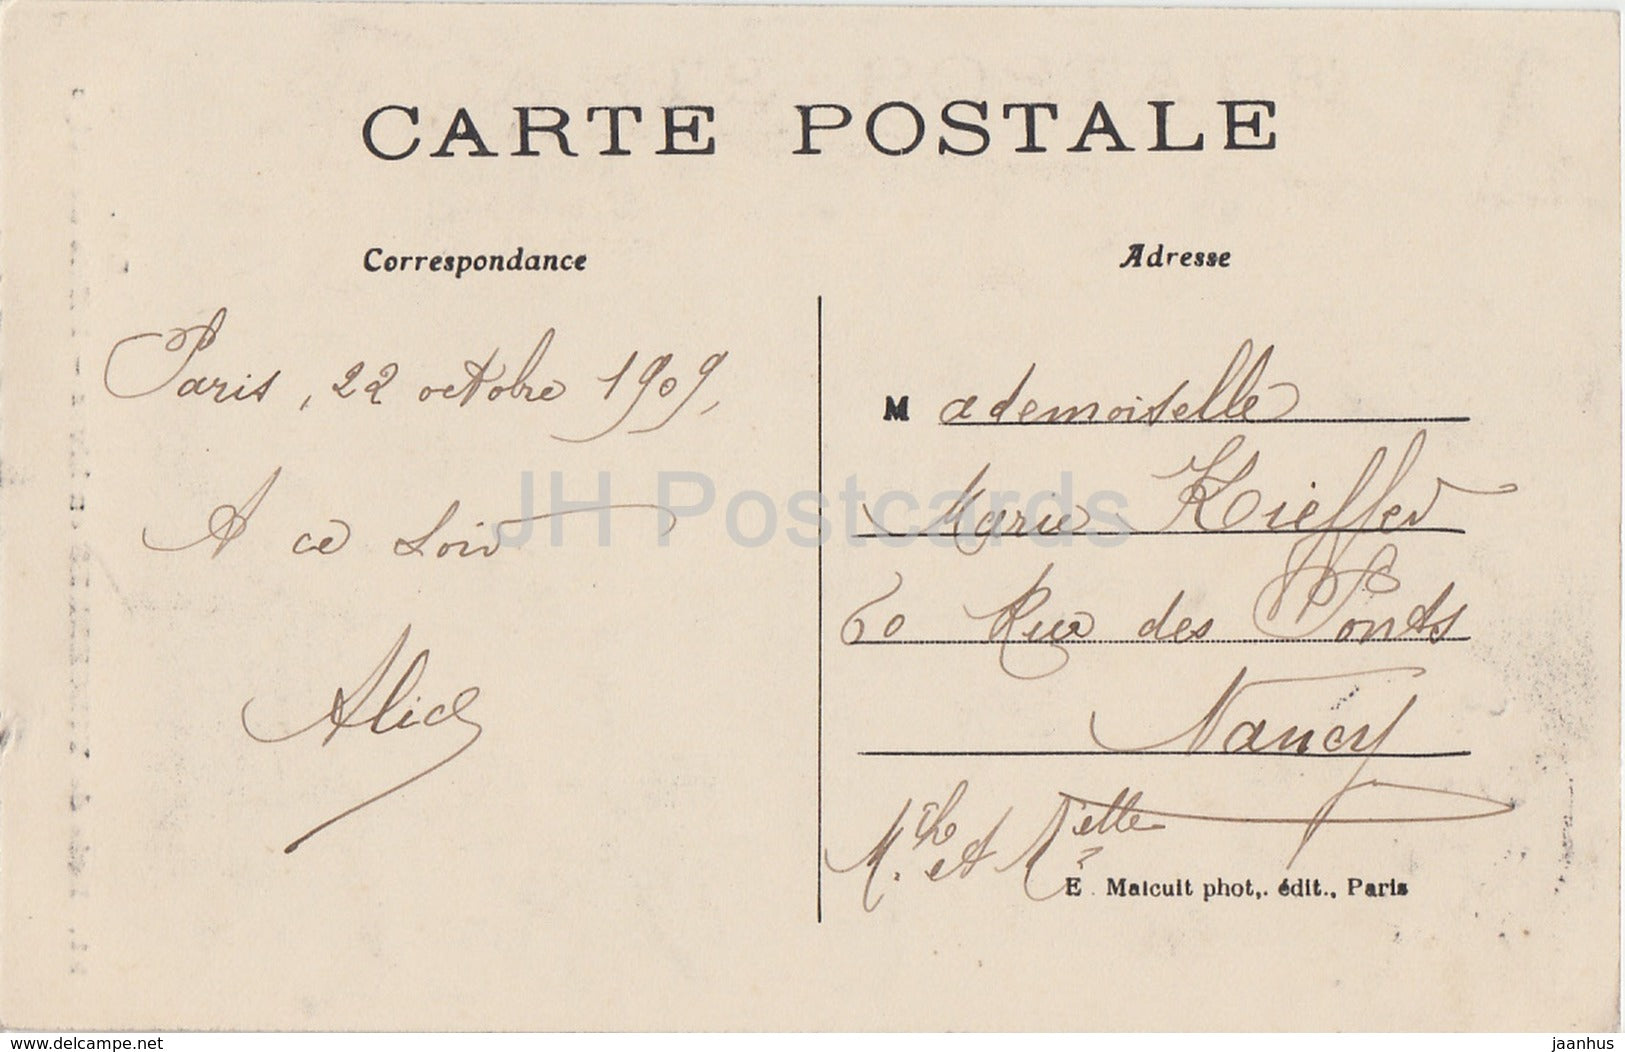 CARTE POSTALE
Correspondance
Paris, 22 octobre 1909,
A ce soir
Alice
Adresse
Mademoiselle
Marie Kieffer
60 Rue des Ponts
Nancy
Mthe et M
E. Malcuit phot,. édit., Paris
JH Postcards
delcampe.net
jaanhus